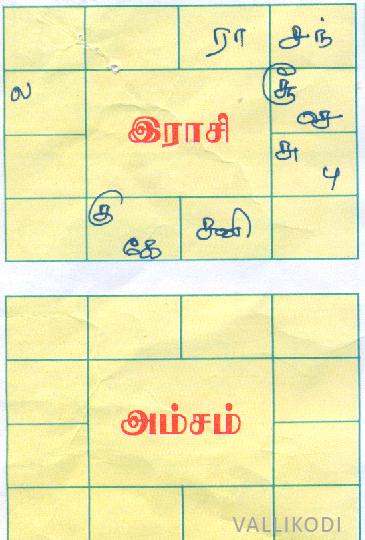 ரா சந்
ல
சூ
இராசி
அ
பு
கு
கே
சனி
அம்சம்
VALLIKODI